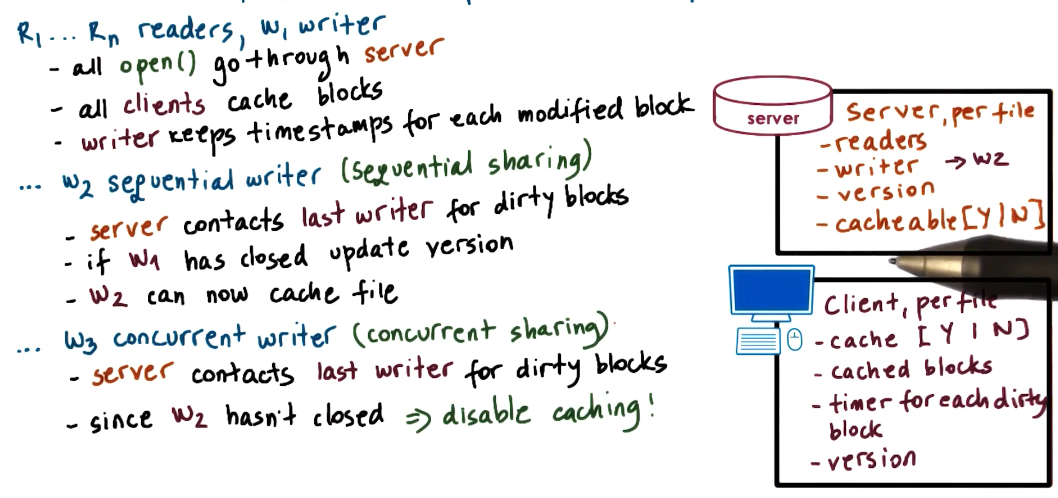 R1 ... Rn readers, W1 writer
- all open() go through server
- all clients cache blocks
- writer keeps timestamps for each modified block
... W2 sequential writer (sequential sharing)
- server contacts last writer for dirty blocks
- if W1 has closed update version
- W2 can now cache file
... W3 concurrent writer (concurrent sharing)
- server contacts last writer for dirty blocks
- since W2 hasn't closed => disable caching!
server
Server, per file
- readers
- writer → W2
- version
- cacheable [Y|N]
Client, per file
- cache [Y|N]
- cached blocks
- timer for each dirty
block
- version